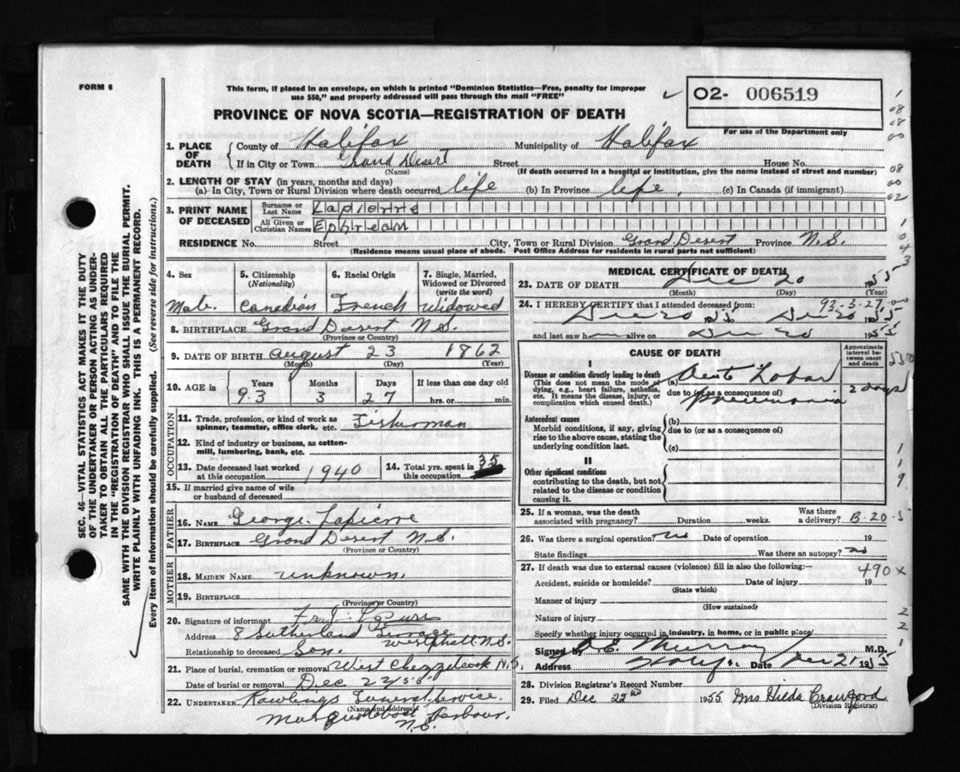 FORM 6
This form, if placed in an envelope, on which is printed "Dominion Statistics—Free, penalty for improper
use $50," and properly addressed will pass through the mail "FREE"
02- 006519
For use of the Department only
PROVINCE OF NOVA SCOTIA—REGISTRATION OF DEATH
1. PLACE OF DEATH
County of Halifax Municipality of Halifax
If in City or Town Grand Desert Street House No.
(Name) (If death occurred in a hospital or institution, give the name instead of street and number)
2. LENGTH OF STAY (in years, months and days)
(a) In City, Town or Rural Division where death occurred life (b) In Province life. (c) In Canada (if immigrant)
3. PRINT NAME OF DECEASED
Surname or Last Name Lapierre
All Given or Christian Names Ephream
RESIDENCE No. Street City, Town or Rural Division Grand Desert Province N.S.
(Residence means usual place of abode. Post Office Address for residents in rural parts not sufficient)
4. Sex 5. Citizenship (Nationality) 6. Racial Origin 7. Single, Married, Widowed or Divorced (write the word)
Male Canadian French Widowed
8. BIRTHPLACE Grand Desert N.S.
(Province or Country)
9. DATE OF BIRTH August 23 1862
(Month) (Day) (Year)
10. AGE in Years Months Days If less than one day old
93 3 27 hrs. or min.
OCCUPATION
11. Trade, profession, or kind of work as
spinner, teamster, office clerk, etc. Fisherman
12. Kind of industry or business, as cotton-
mill, lumbering, bank, etc.
13. Date deceased last worked
at this occupation 1940
14. Total yrs. spent in
this occupation 35
15. If married give name of wife
or husband of deceased
FATHER
16. NAME George Lapierre
17. BIRTHPLACE Grand Desert N.S.
(Province or Country)
MOTHER
18. MAIDEN NAME unknown.
19. BIRTHPLACE
(Province or Country)
20. Signature of informant
Address 8 Sutherland N.S.
Relationship to deceased Son.
21. Place of burial, cremation or removal West Chezzetcook N.S.
Date of burial or removal Dec 22/55.
22. UNDERTAKER Rawlings Funeral Service.
(Name and address)
Musquodoboit Harbour.
N.S.
MEDICAL CERTIFICATE OF DEATH
23. DATE OF DEATH Dec 20 1955
(Month) (Day) (Year)
92-3-27
24. I HEREBY CERTIFY that I attended deceased from:
Dec 20 1955 Dec 20 1955
and last saw h alive on Dec 20 1955
CAUSE OF DEATH
Approximate interval between onset and death
I
Disease or condition directly leading to death
(This does not mean the mode of
dying, e.g., heart failure, asthenia,
etc. It means the disease, injury, or
complication which caused death.)
(a) Acute Lobar
due to (or as a consequence of)
Pneumonia
2 days
Antecedent causes
Morbid conditions, if any, giving
rise to the above cause, stating the
underlying condition last.
(b)
due to (or as a consequence of)
(c)
II
Other significant conditions
contributing to the death, but not
related to the disease or condition
causing it.
25. If a woman, was the death
associated with pregnancy? Duration weeks. Was there a delivery? B-20-5
26. Was there a surgical operation? no Date of operation 19
State findings Was there an autopsy? no
27. If death was due to external causes (violence) fill in also the following:— 490 x
Accident, suicide or homicide? Date of injury 19
(State which)
Manner of injury
(How sustained)
Nature of injury
Specify whether injury occurred in industry, in home, or in public place
Signed by Murray M.D.
Address Date Dec 21 1955
28. Division Registrar's Record Number
29. Filed Dec 22nd 1955 Mrs Hilda Crawford
(Division Registrar)
SEC. 46—VITAL STATISTICS ACT MAKES IT THE DUTY
OF THE UNDERTAKER OR PERSON ACTING AS UNDER-
TAKER TO OBTAIN ALL THE PARTICULARS REQUIRED
IN THE "REGISTRATION OF DEATH" AND TO FILE THE
SAME WITH THE DIVISION REGISTRAR WHO SHALL ISSUE THE BURIAL PERMIT.
WRITE PLAINLY WITH UNFADING INK. THIS IS A PERMANENT RECORD.
Every item of information should be carefully supplied. (See reverse side for instructions.)